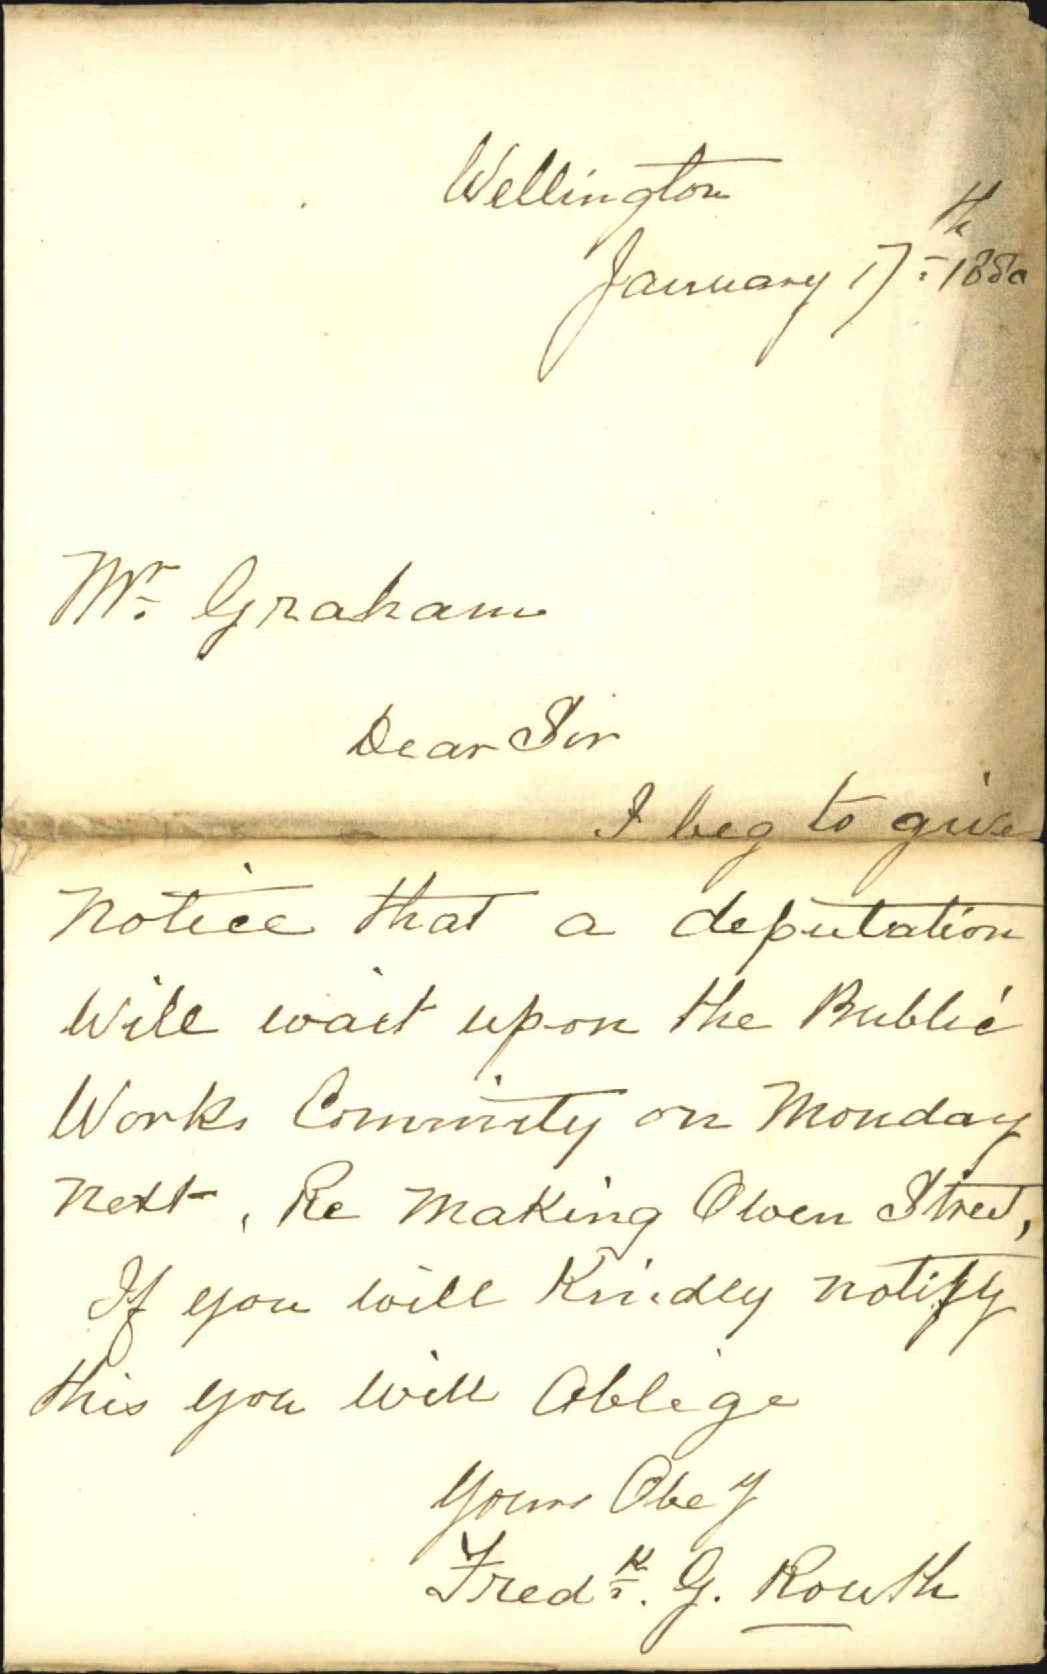 Wellington
January 17th 1880
Mr. Graham
Dear Sir
I beg to give
notice that a deputation
will wait upon the Public
Works Commity on Monday
next, Re making Owen Street,
If you will Kindly notify
this you will Oblige
Yours Obey
Fredk. G. Routh